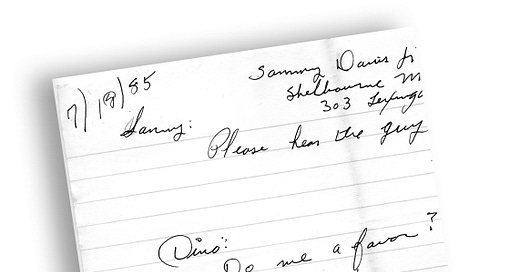 7/18/85
Sammy Davis Jr
Shelbourne M
303 Lexingt
Sammy:
Please hear the guy
Dino:
Do me a favor?